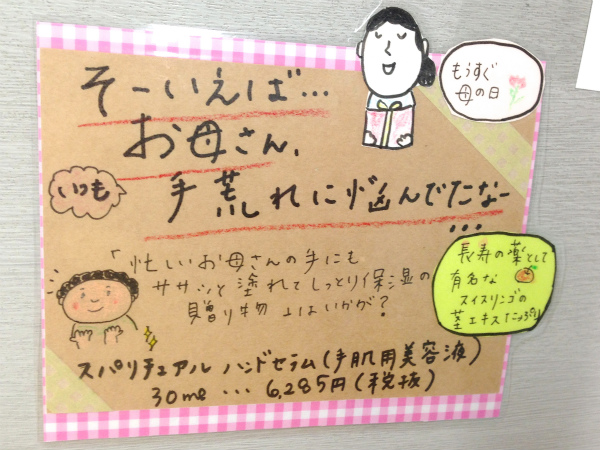 もうすぐ
母の日
そーいえば…
お母さん、
いつも
手荒れに悩んでたなー
…
「忙しいお母さんの手にも
ササッと塗れてしっとり保湿の
贈り物」はいかが?
長寿の薬として
有名な
スイスリンゴの
茎エキスたっぷり
スパリチュアル ハンドセラム(手肌用美容液)
30ml … 6,285円(税抜)